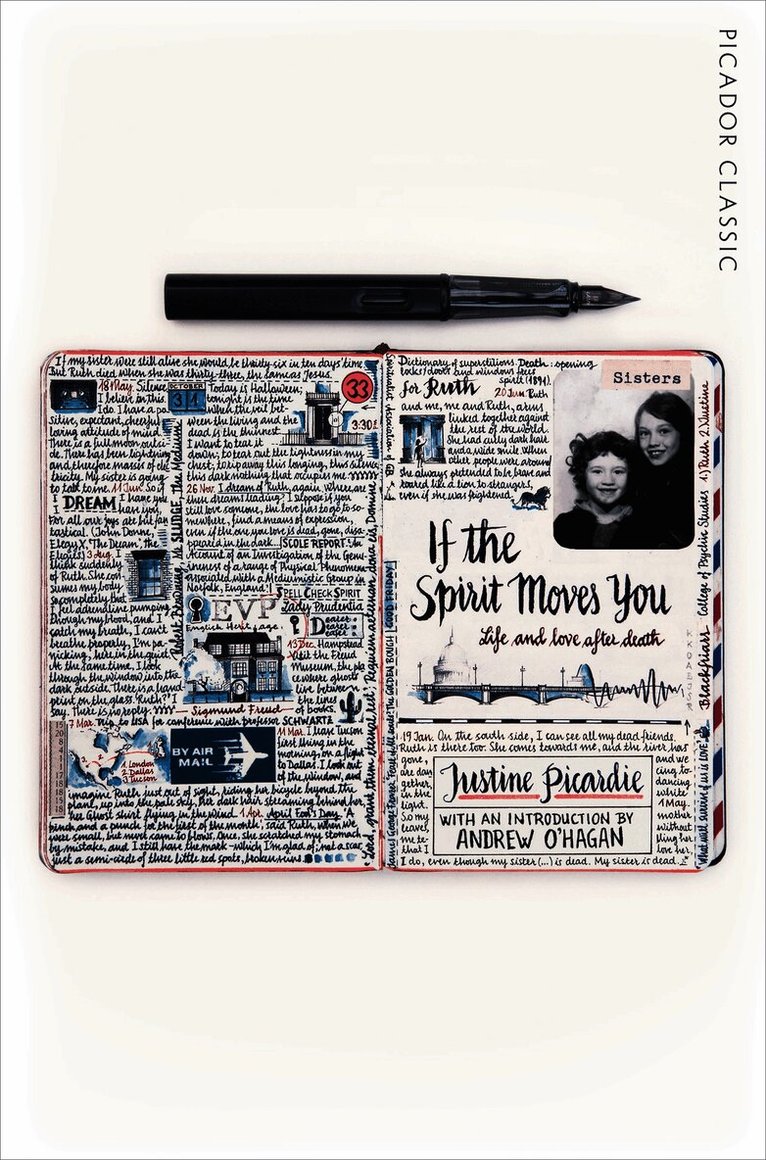 PICADOR CLASSIC
If my sister were still alive she would be thirty-six in ten days' time.
But Ruth died when she was thirty-three, the same as Jesus.
18 May. Silence.
I believe in this.
I do. I have a
silent, expectant, cheerful,
loving attitude of mind.
There is a full moon outside.
There has been lightning
and therefore masses of elec
tricity. My sister is going
to talk to me. 11 Jun. So if
I DREAM I have you
I have you,
For all our joys are but fan
tastical. (John Donne,
Elegy X, 'The Dream', the
Elegies) 3 Aug. I
think suddenly
of Ruth. She con-
sumes my body
so completely that
I feel adrenaline pumping
through my blood, and I
catch my breath, I can't
breathe properly, I'm pa-
nicking, here in the quiet.
At the same time, I look
through the window into the
dark outside. There is a hand
print on the glass. 'Ruth?' I
say. There is no reply.
Robert Browning, Mr SLUDGE, 'The Medium'
OCTOBER
31
Today is Halloween;
tonight is the time
when the veil bet
ween the living and the
dead is the thinnest
I want to tear it
down; to tear out the tightness in my
chest; to rip away this longing, this silence
this dark nothing that occupies me
33
3.30
26 Nov. I dream of Ruth, again. Where are
these dreams leading? I suppose if you
still love someone, the love has to go to so-
mewhere, find a means of expression,
even if the one you love is dead, gone, disa-
ppeared in the dark... SCOLE REPORT: 'An
Account of an Investigation of the Genu-
ineness of a range of Physical Phenomena
associated with a Mediumistic Group in
Norfolk, England'.
SPELL CHECK SPIRIT
EVP
Lady Prudentia
English Heritage.
Dearer
easer
easel
13 Dec. Hampstead
Visit the Freud
Museum, the pla
ce where ghosts
live between
the lines
of books.
Sigmund Freud
7 Mar. Trip to USA for conference with professor SCHWARTZ
1 London
2 Dallas
3 Tucson
BY AIR
MAIL
11 Mar. I leave Tucson
first thing in the
morning, on a flight
to Dallas. I look out
of the window, and
imagine Ruth just out of sight, riding her bicycle beyond the
plane, up into the pale sky, her dark hair streaming behind her,
her Ghost skirt flying in the wind. 1 Apr. April Fool's Day. 'A
pinch and a punch for the first of the month', said Ruth, when we
were small, but most came to blows. Once, she scratched my stomach
by mistake, and I still have the mark – which I'm glad of; not a scar,
just a semi-circle of three little red spots, broken veins.
GOOD FRIDAY
GOLDEN BOUGH
Dictionary of superstitions. Death: opening
locks/doors and windows frees
spirit (1891).
for Ruth
20 Jun. Ruth
and me, me and Ruth, arms
linked together against
the rest of the world.
She had curly dark hair
and a wide smile. When
other people were around
she always pretended to be brave and
roared like a lion to strangers,
even if she was frightened.
Sisters
If the
Spirit Moves You
Life and love after death
College of Psychic Studies 1) Ruth 2 Nineteen
Blackfriars
What will survive of us is LOVE
19 Jan. On the south side, I can see all my dead friends.
Ruth is there too. She comes towards me, and the river has
gone,
are day
gether,
in the
light.
So my
leaves,
me te-
that I
and we
cing to-
dancing
white
1 May.
mother
without
thing
love her,
Justine Picardie
WITH AN INTRODUCTION BY
ANDREW O'HAGAN
I do, even though my sister (...) is dead. My sister is dead.